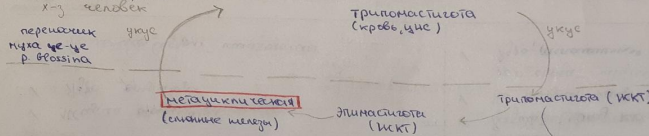 х-з человек
переносчик
муха це-це
р. Glossina
укус
трипомастигота
(кровь, цнс)
укус
метациклическая
(слюнные железы)
эпимастигота
(ЖКТ)
трипомастигота (ЖКТ)